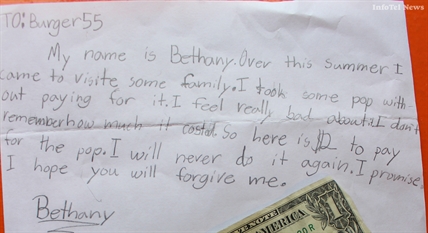 InfoTel News
TO: Burger 55
My name is Bethany. Over this summer I
came to visite some family. I took some pop with-
out paying for it. I feel really bad about it. I don't
remember how much it costed. So here is to pay
for the pop. I will never do it again. I promise.
I hope you will forgive me.
Bethany
AMERICA
1